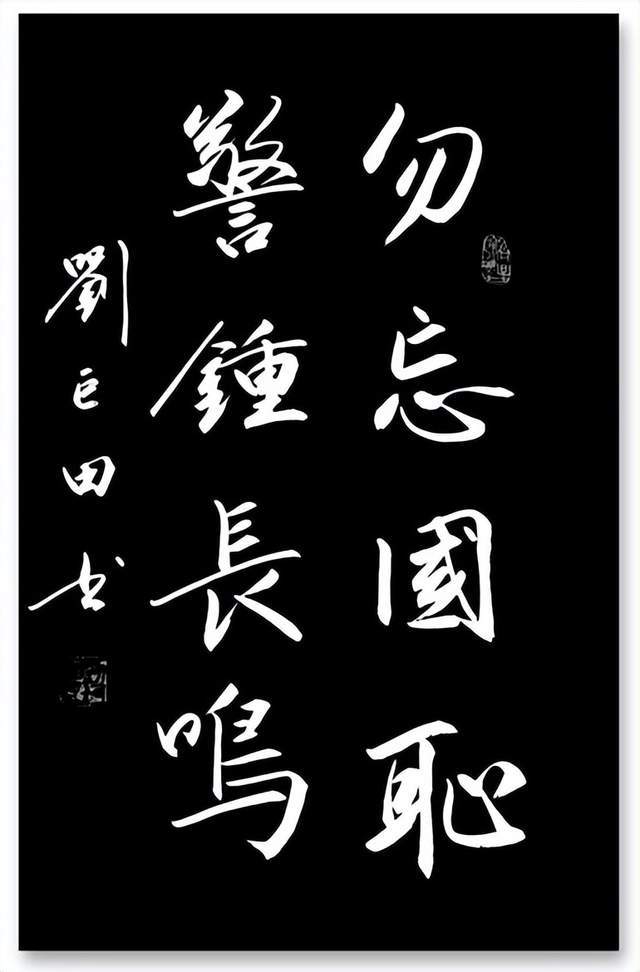 勿忘國恥
警鍾長鳴
劉巨田书